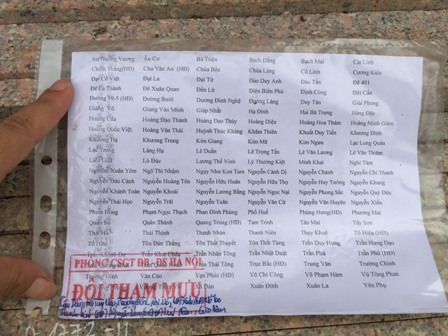 An Dương Vương Âu Cơ Bà Triệu Bạch Đằng Bạch Mai Cát Linh
Chiến Thắng(HD) Chu Văn An (HD) Chùa Bộc Chùa Láng Cổ Linh Cương Kiên
Đại Cồ Việt Đại La Đại Từ Đào Duy Anh Đào Tấn Đê 401
Đê La Thành Đê Xuân Quan Đền Lừ Điện Biên Phủ Định Công Đội Cấn
Đường 19-5 (HD) Đường Bưởi Dương Đình Nghệ Đường Láng Duy Tân Giải Phóng
Giảng Võ Giang Văn Minh Giáp Nhất Hai Bà Trưng Hàng Đậu
Hoàng Cầu Hoàng Đạo Thành Hoàng Đạo Thúy Hoàng Diệu Hoàng Hoa Thám Hoàng Minh Giám
Hoàng Quốc Việt Hoàng Văn Thái Huỳnh Thúc Kháng Khâm Thiên Khuất Duy Tiến Khương Đình
Khương Hạ Khương Trung Kim Giang Kim Mã Kim Ngưu Lạc Long Quân
Lạc Trung Láng Hạ Lê Duẩn Lê Trọng Tấn Lê Văn Lương Lê Văn Thiêm
Liễu Giai Lò Đúc Lương Thế Vinh Lý Thường Kiệt Minh Khai Nghi Tàm
Nguyễn Xuân Yêm Ngô Thì Nhậm Ngụy Như Kom Tum Nguyễn Cảnh Dị Nguyễn Chánh Nguyễn Chí Thanh
Nguyễn Đức Cảnh Nguyễn Hoàng Tôn Nguyễn Hữu Huân Nguyễn Hữu Thọ Nguyễn Huy Tưởng Nguyễn Khang
Nguyễn Khánh Toàn Nguyễn Khoái Nguyễn Lương Bằng Nguyễn Ngọc Nại Nguyễn Phong Sắc Nguyễn Quý Đức
Nguyễn Thái Học Nguyễn Trãi Nguyễn Tuân Nguyễn Văn Cừ Nguyễn Văn Huyên Nguyễn Xiển
Phan Hưng Phạm Ngọc Thạch Phan Đình Phùng Phố Huế Phùng Hưng(HD) Phương Mai
Quán Sứ Quán Thánh Quang Trung (HD) Tam Trinh Tân Mai Tây Sơn
Thái Hà Thái Thịnh Thanh Nhàn Thanh Niên Thụy Khuê Tô Hiệu (HD)
Tố Hữu Tôn Đức Thắng Tôn Thất Thuyết Tôn Thất Tùng Trần Duy Hưng Trần Hưng Đạo
Trần Khánh Dư Trần Khát Chân Trần Nhân Tông Trần Nhật Duật Trần Phú (HD) Trần Phú
Trúc Bạch Trung Văn Trường Chinh
Trường Định Văn Cao Vạn Phúc (HD) Võ Chí Công Võ Phạm Hàm Vũ Tông Phan
Xã Đàn Xuân Đỉnh Xuân La Yên Phụ
PHÒNG CSGT ĐB-ĐS HÀ NỘI
ĐỘI THAM MƯU